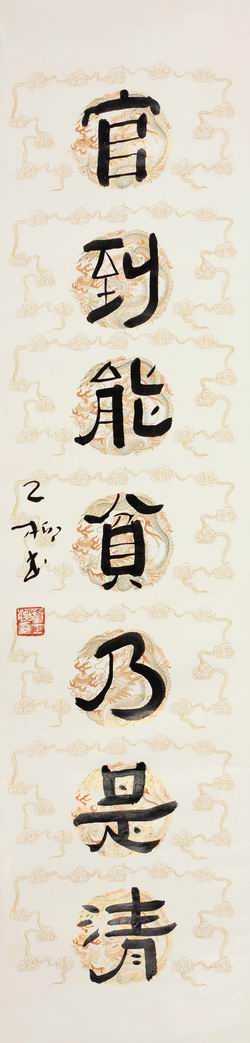 官到能貧乃是清
乙柳書